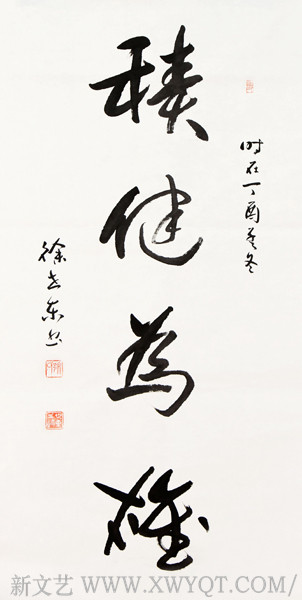 时在丁酉冬
積健為雄
徐东书
新文艺 WWW.XWYQT.COM/